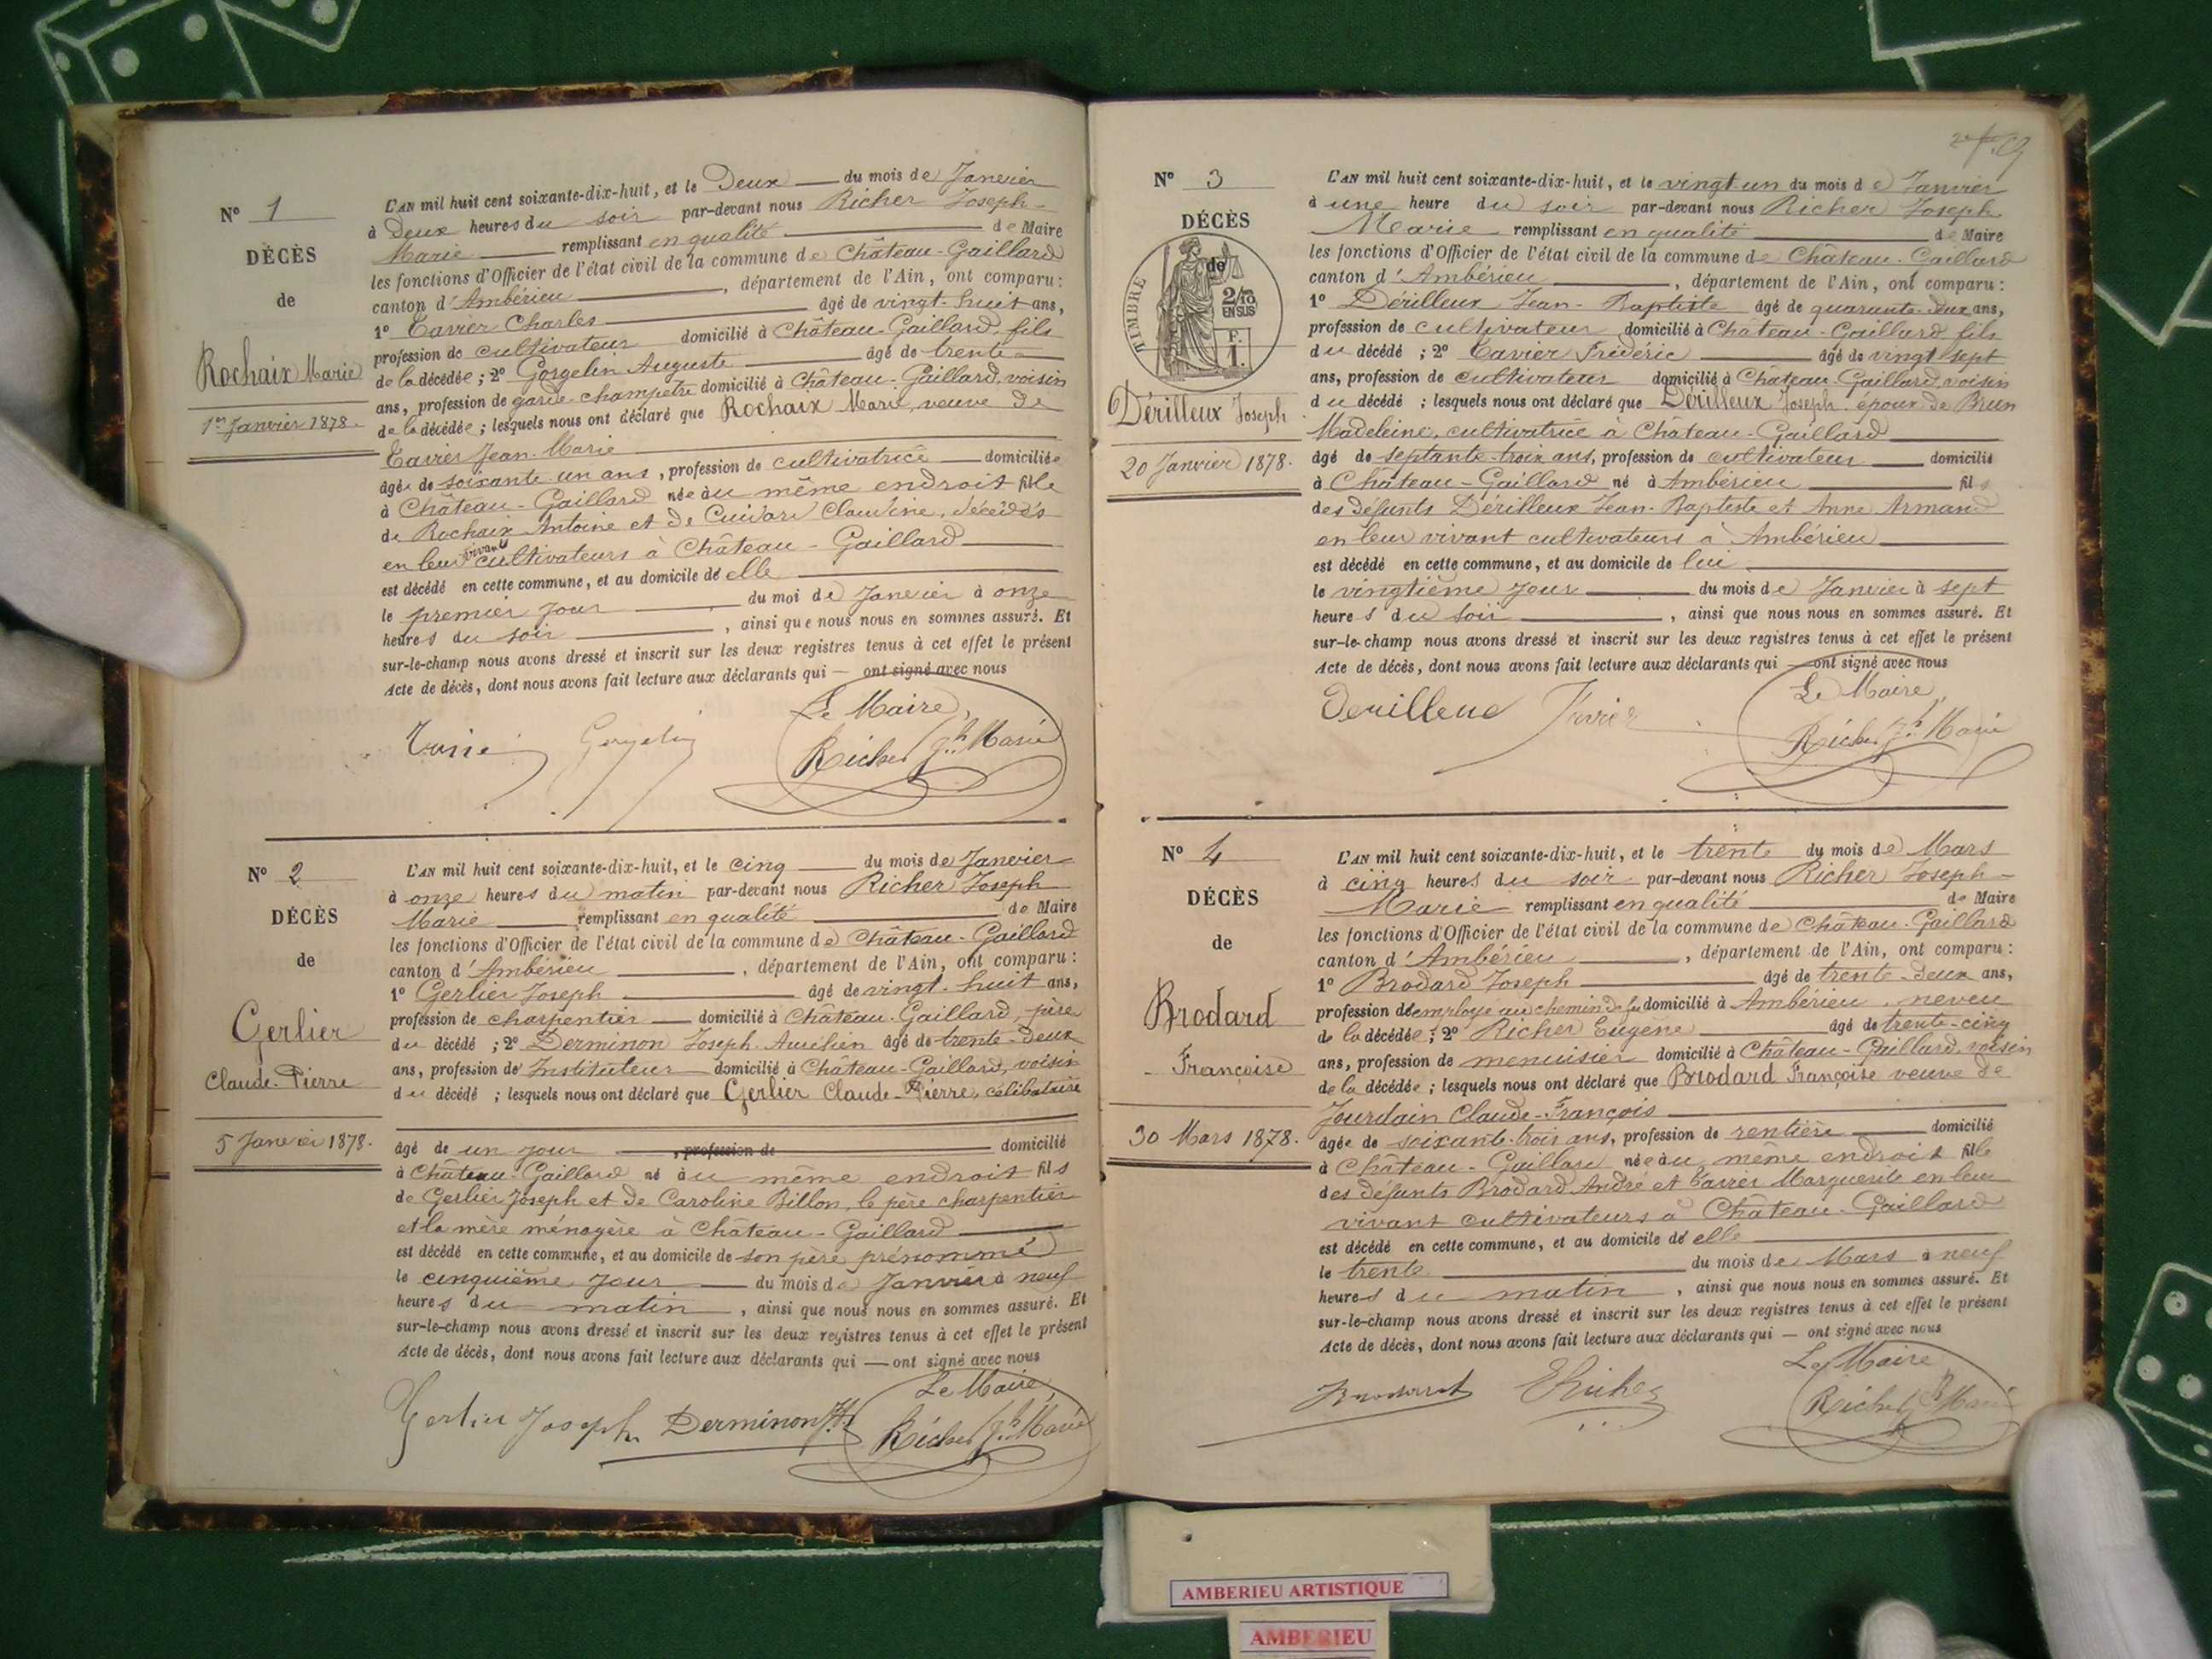 N° 1
DÉCÈS
de
Rochaix Marie
1er Janvier 1878.
L'AN mil huit cent soixante-dix-huit, et le Deux du mois de Janvier
à Deux heures du soir par-devant nous Richer Joseph-
Marie remplissant en qualité de Maire
les fonctions d'Officier de l'état civil de la commune de Château-Gaillard
canton d'Ambérieu, département de l'Ain, ont comparu:
1° Tavier Charles âgé de vingt-huit ans,
profession de cultivateur domicilié à Château-Gaillard, fils
de la décédée; 2° Gorgelin Auguste âgé de trente
ans, profession de garde-champetre domicilié à Château-Gaillard, voisin
de la décédée; lesquels nous ont déclaré que Rochaix Marie, veuve de
Tavier Jean-Marie
âgée de soixante-un ans, profession de cultivatrice domiciliée
à Château-Gaillard née au même endroit fille
de Rochaix Antoine et de Cuidard Claudine, décédés
en leur vivant cultivateurs à Château-Gaillard
est décédé en cette commune, et au domicile de elle
le premier jour du moi de Janvier à onze
heures du soir, ainsi que nous nous en sommes assuré. Et
sur-le-champ nous avons dressé et inscrit sur les deux registres tenus à cet effet le présent
Acte de décès, dont nous avons fait lecture aux déclarants qui — ont signé avec nous
Le Maire,
Richer Jh Marie
N° 2
DÉCÈS
de
Gerlier
Claude-Pierre
5 Janvier 1878.
L'AN mil huit cent soixante-dix-huit, et le cinq du mois de Janvier
à onze heures du matin par-devant nous Richer Joseph
Marie remplissant en qualité de Maire
les fonctions d'Officier de l'état civil de la commune de Château-Gaillard
canton d'Ambérieu, département de l'Ain, ont comparu:
1° Gerlier Joseph âgé de vingt-huit ans,
profession de charpentier domicilié à Château-Gaillard, père
du décédé; 2° Derminon Joseph-Aurélien âgé de trente-deux
ans, profession de Instituteur domicilié à Château-Gaillard, voisin
du décédé; lesquels nous ont déclaré que Gerlier Claude-Pierre, célibataire
âgé de un jour, profession de domicilié
à Château-Gaillard né au même endroit fils
de Gerlier Joseph et de Caroline Billon, le père charpentier
et la mère ménagère à Château-Gaillard
est décédé en cette commune, et au domicile de son père prénommé
le cinquième jour du mois de Janvier à neuf
heures du matin, ainsi que nous nous en sommes assuré. Et
sur-le-champ nous avons dressé et inscrit sur les deux registres tenus à cet effet le présent
Acte de décès, dont nous avons fait lecture aux déclarants qui — ont signé avec nous
Le Maire,
Gerlier Joseph Derminon Richer Jh Marie
N° 3
DÉCÈS
de
TIMBRE
2/10
EN SUS
F.
1.
Dérilleux Joseph
20 Janvier 1878.
L'AN mil huit cent soixante-dix-huit, et le vingt un du mois de Janvier
à une heure du soir par-devant nous Richer Joseph
Marie remplissant en qualité de Maire
les fonctions d'Officier de l'état civil de la commune de Château-Gaillard
canton d'Ambérieu, département de l'Ain, ont comparu:
1° Dérilleux Jean-Baptiste âgé de quarante-deux ans,
profession de cultivateur domicilié à Château-Gaillard fils
du décédé; 2° Tavier Frédéric âgé de vingt-sept
ans, profession de cultivateur domicilié à Château-Gaillard, voisin
du décédé; lesquels nous ont déclaré que Dérilleux Joseph époux de Brun
Madeleine, cultivatrice à Château-Gaillard
âgé de septante-trois ans, profession de cultivateur domicilié
à Château-Gaillard né à Ambérieu fils
des défunts Dérilleux Jean-Baptiste et Anne Armand
en leur vivant cultivateurs à Ambérieu
est décédé en cette commune, et au domicile de lui
le vingtième jour du mois de Janvier à sept
heures du soir, ainsi que nous nous en sommes assuré. Et
sur-le-champ nous avons dressé et inscrit sur les deux registres tenus à cet effet le présent
Acte de décès, dont nous avons fait lecture aux déclarants qui — ont signé avec nous
Le Maire,
Richer Jh Marie
N° 4
DÉCÈS
de
Brodard
Françoise
30 Mars 1878.
L'AN mil huit cent soixante-dix-huit, et le trente du mois de Mars
à cinq heures du soir par-devant nous Richer Joseph-
Marie remplissant en qualité de Maire
les fonctions d'Officier de l'état civil de la commune de Château-Gaillard
canton d'Ambérieu, département de l'Ain, ont comparu:
1° Brodard Joseph âgé de trente-deux ans,
profession d'employé au chemin de fer domicilié à Ambérieu, neveu
de la décédée; 2° Richer Eugène âgé de trente-cinq
ans, profession de menuisier domicilié à Château-Gaillard, voisin
de la décédée; lesquels nous ont déclaré que Brodard Françoise veuve de
Jourdain Claude-François
âgée de soixante-trois ans, profession de rentière domicilié
à Château-Gaillard née au même endroit fille
des défunts Brodard André et Tavier Marguerite en leur
vivant cultivateurs à Château-Gaillard
est décédé en cette commune, et au domicile de elle
le trente du mois de Mars à neuf
heures du matin, ainsi que nous nous en sommes assuré. Et
sur-le-champ nous avons dressé et inscrit sur les deux registres tenus à cet effet le présent
Acte de décès, dont nous avons fait lecture aux déclarants qui — ont signé avec nous
Le Maire
Richer Jh Marie
AMBERIEU ARTISTIQUE
AMBERIEU